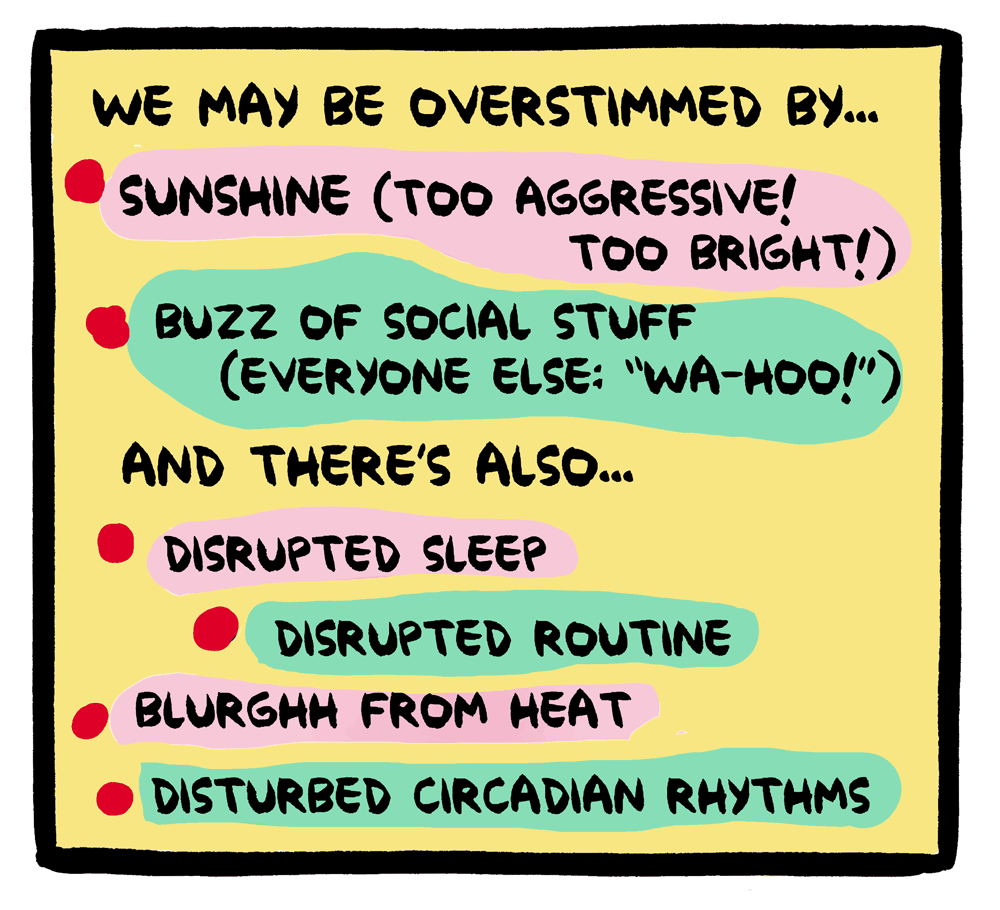 WE MAY BE OVERSTIMMED BY...
SUNSHINE (TOO AGGRESSIVE!
TOO BRIGHT!)
BUZZ OF SOCIAL STUFF
(EVERYONE ELSE: "WA-HOO!")
AND THERE'S ALSO...
DISRUPTED SLEEP
DISRUPTED ROUTINE
BLURGHH FROM HEAT
DISTURBED CIRCADIAN RHYTHMS